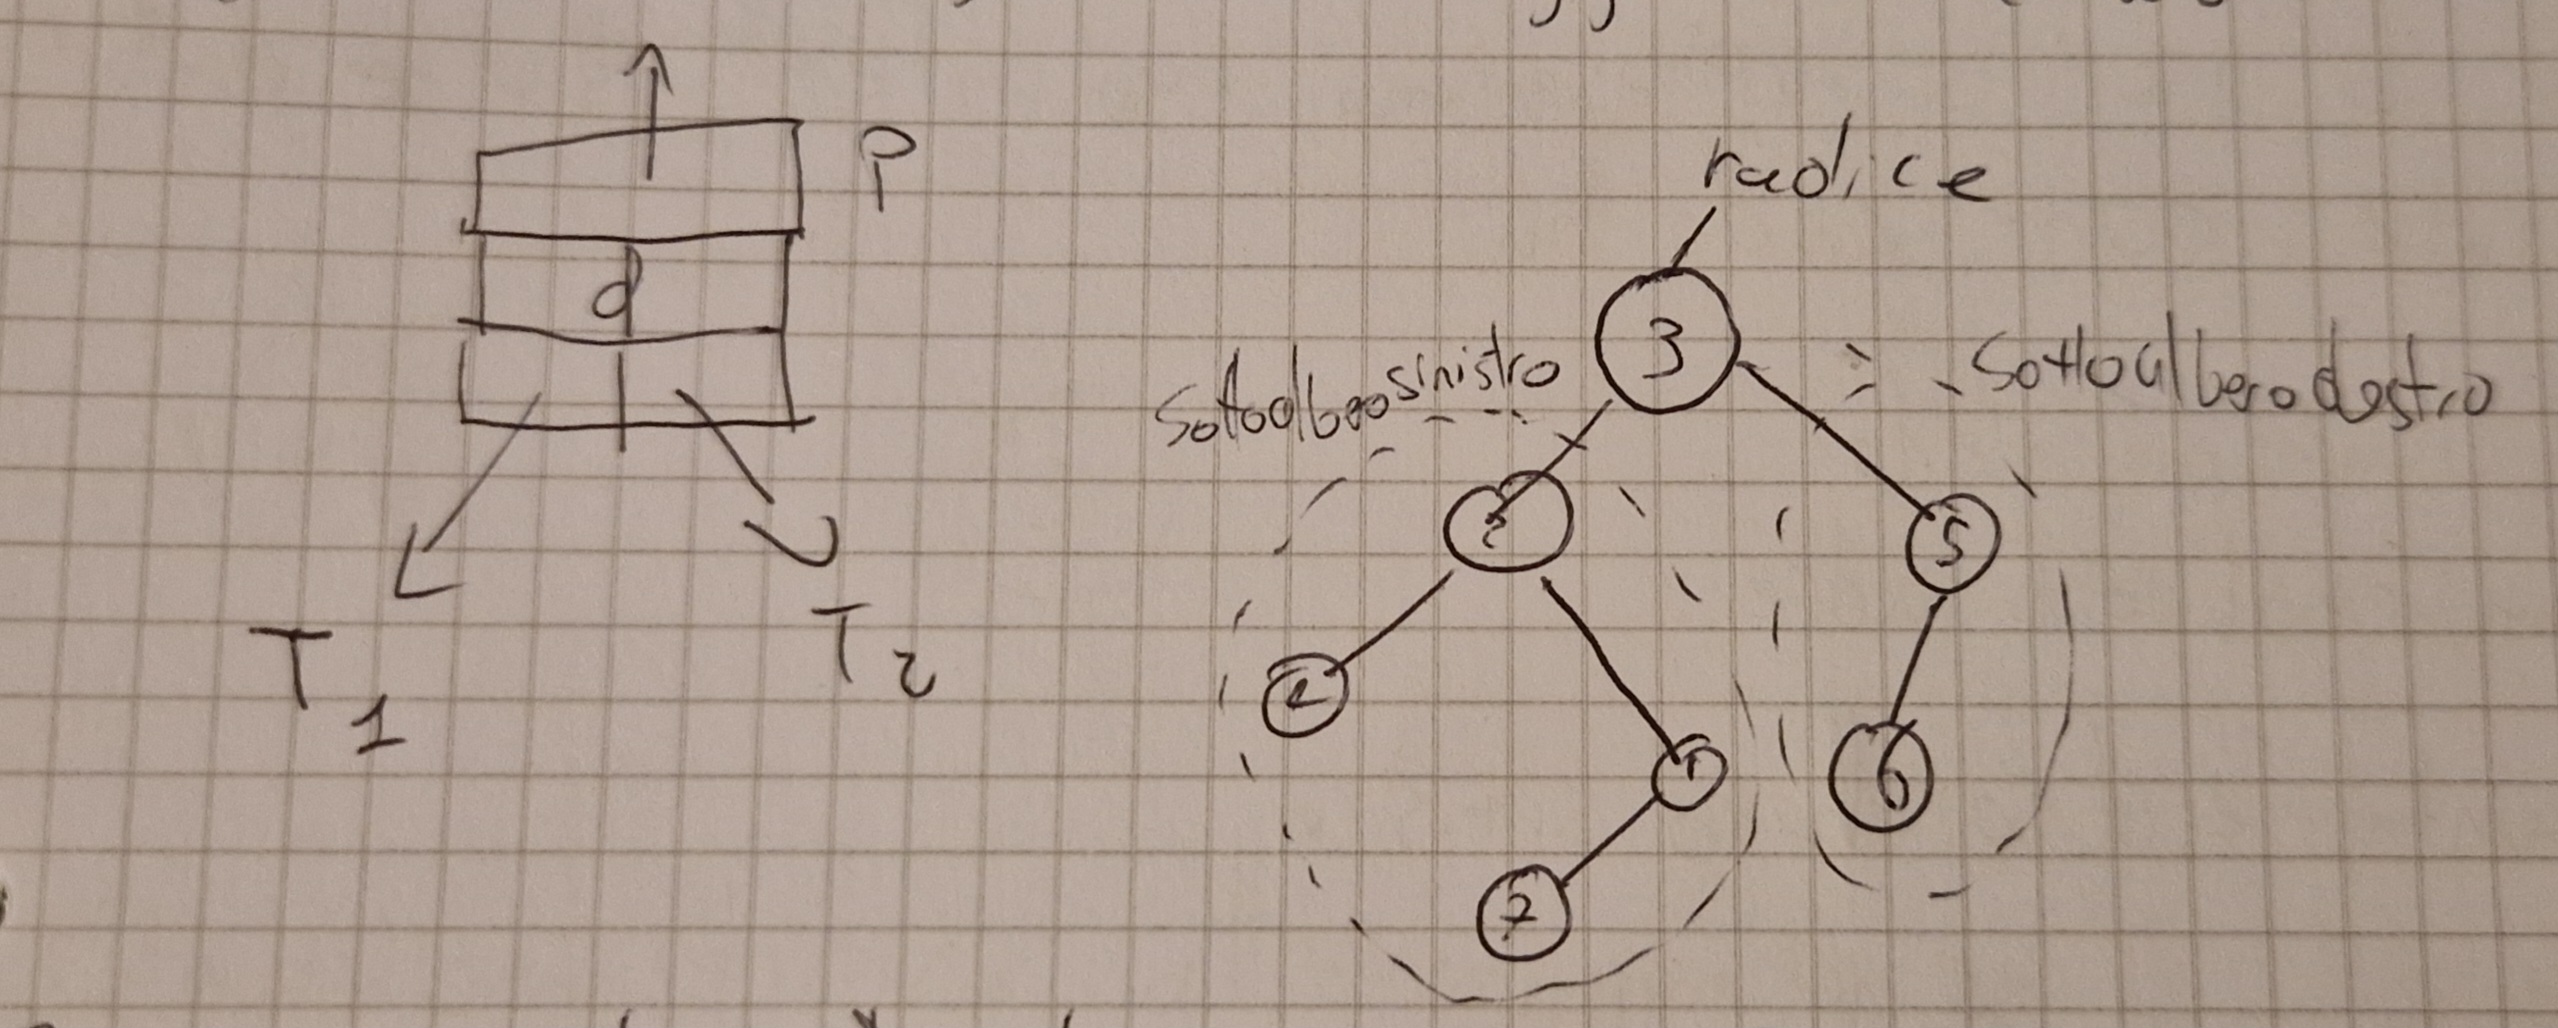 P
d
T1
T2
radice
3
Sottoalbeo sinistro
Sottoalbero destro
2
5
1
6
7